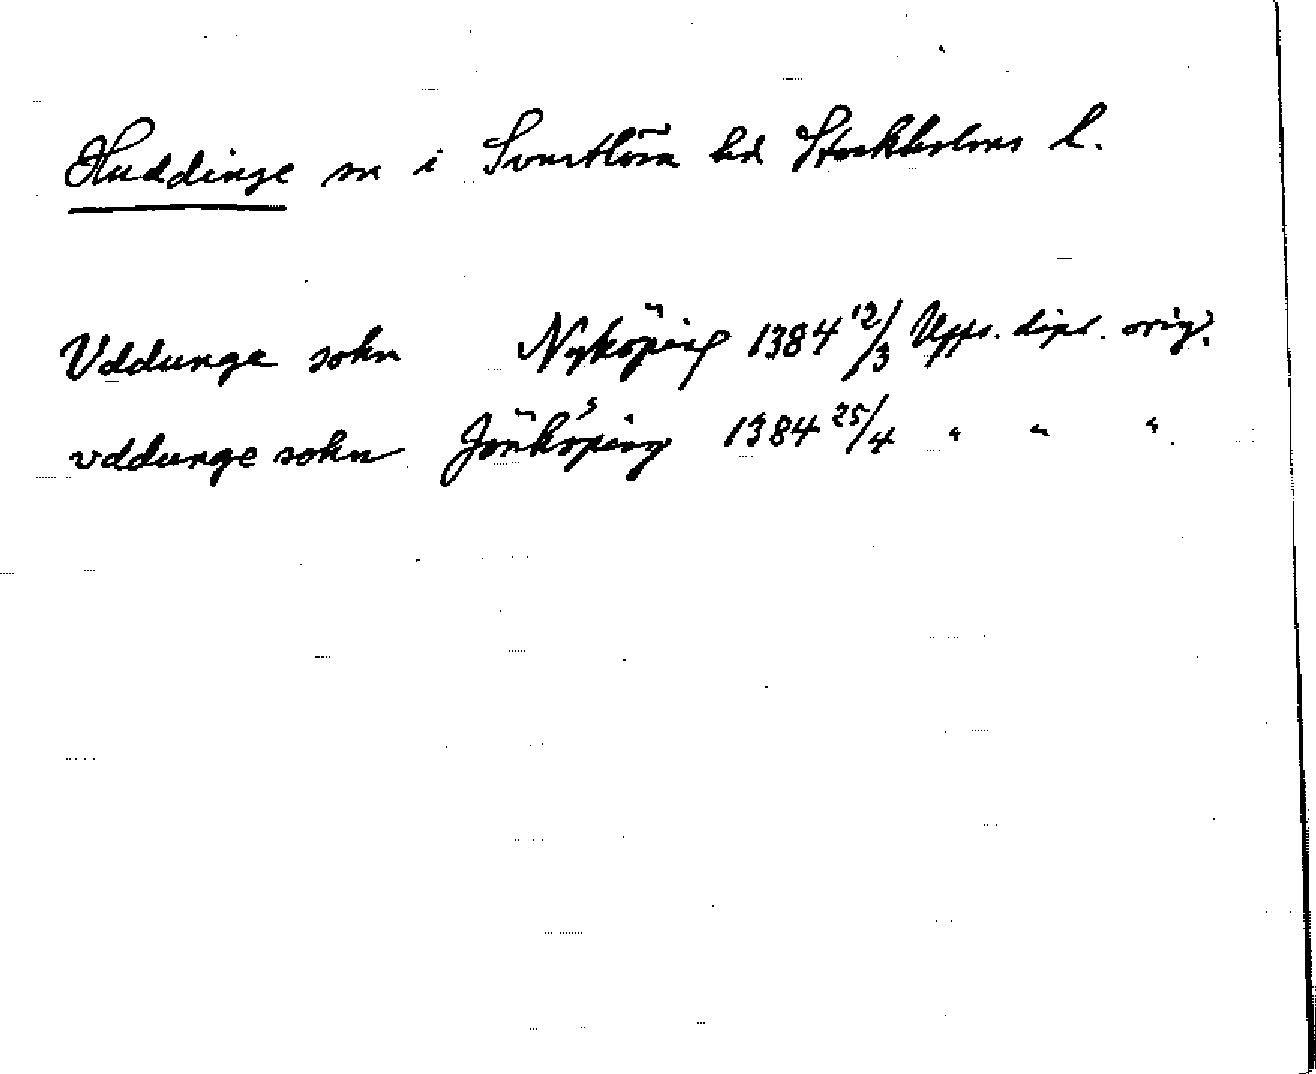 Huddinge sn i Svartlösa hd Stockholms l.
Vddunge sokn Nyköping 1384 12/3 Upps. dipl. orig.
vddunge sokn Jönköping 1384 25/4 " " "